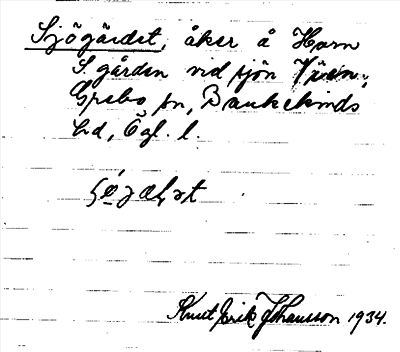 Sjögärdet, åker å Horn
S. gården vid sjön Vrien,
Grebo sn, Bankekinds
hd, Ögl. l.
Knut Erik Johansson 1934.